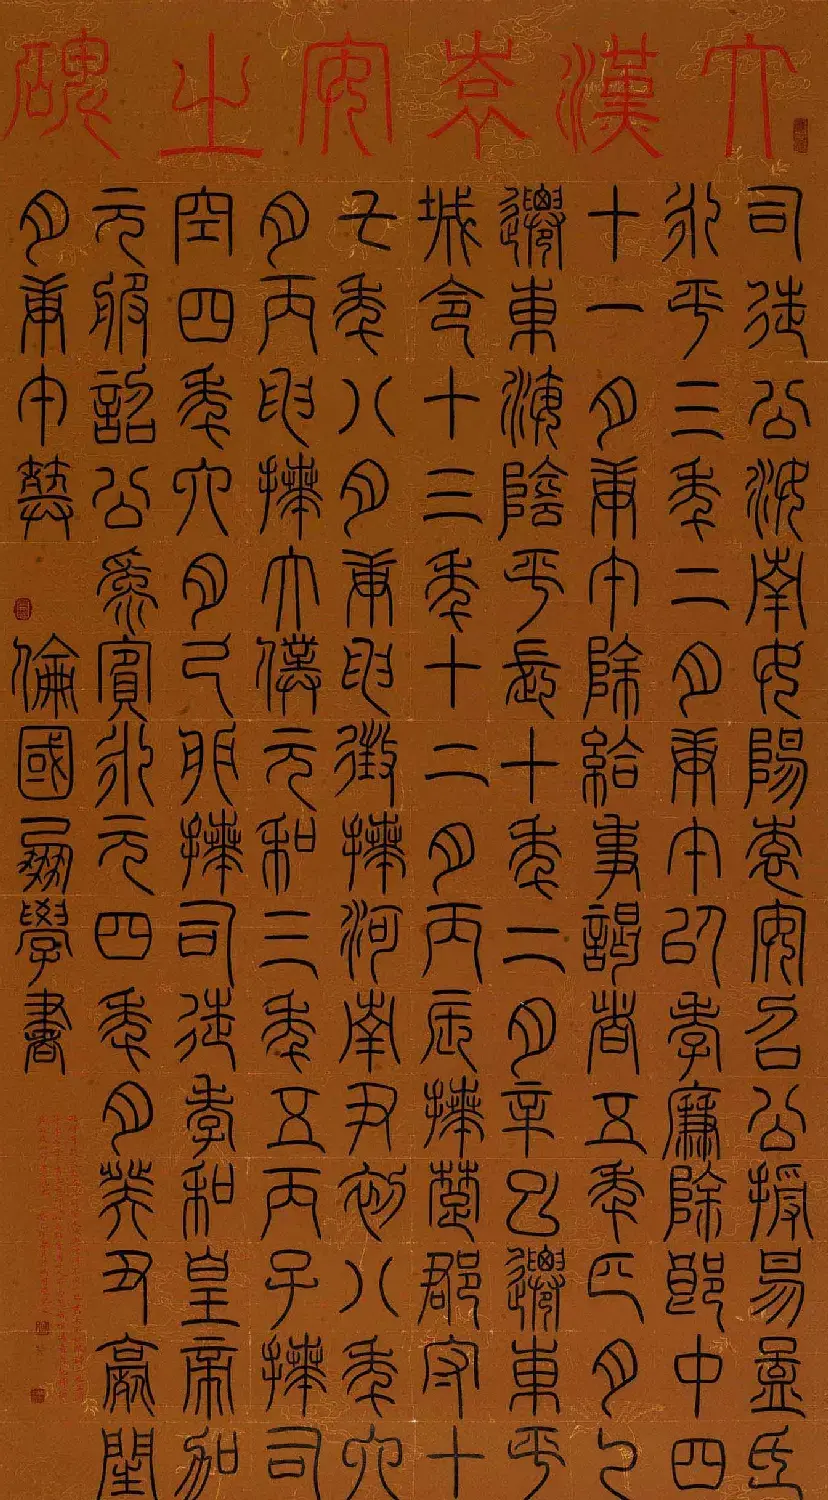 大漢袁安之碑
司徒公汝南女陽袁安召公授易孟氏
永平三年二月庚午以孝廉除郎中四
十一月庚午除給事謁者五年正月乙
遷東海陰平長十年二月辛巳遷東平
城令十三年十二月丙辰拜楚郡守十
七年八月庚申徵拜河南尹初八年六
月丙申拜太僕元和三年五丙子拜司
空四年六月己卯拜司徒孝和皇帝加
元服詔公為賓永元四年月癸丑薨閏
月庚午葬 倫國學書